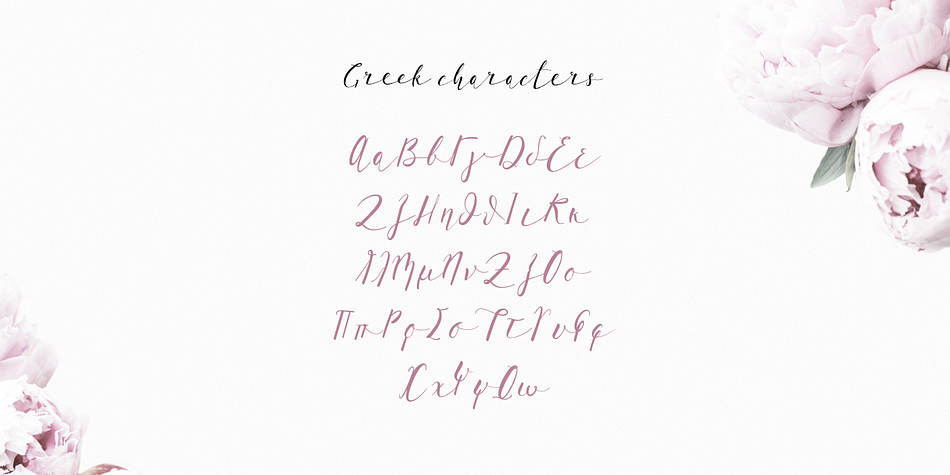 Greek characters
ΑαΒβΓγΔδΕε
ΖζΗηΘθΙιΚκ
ΛλΜμΝνΞξΟο
ΠπΡρΣσΤτΥυΦφ
ΧχΨψΩω